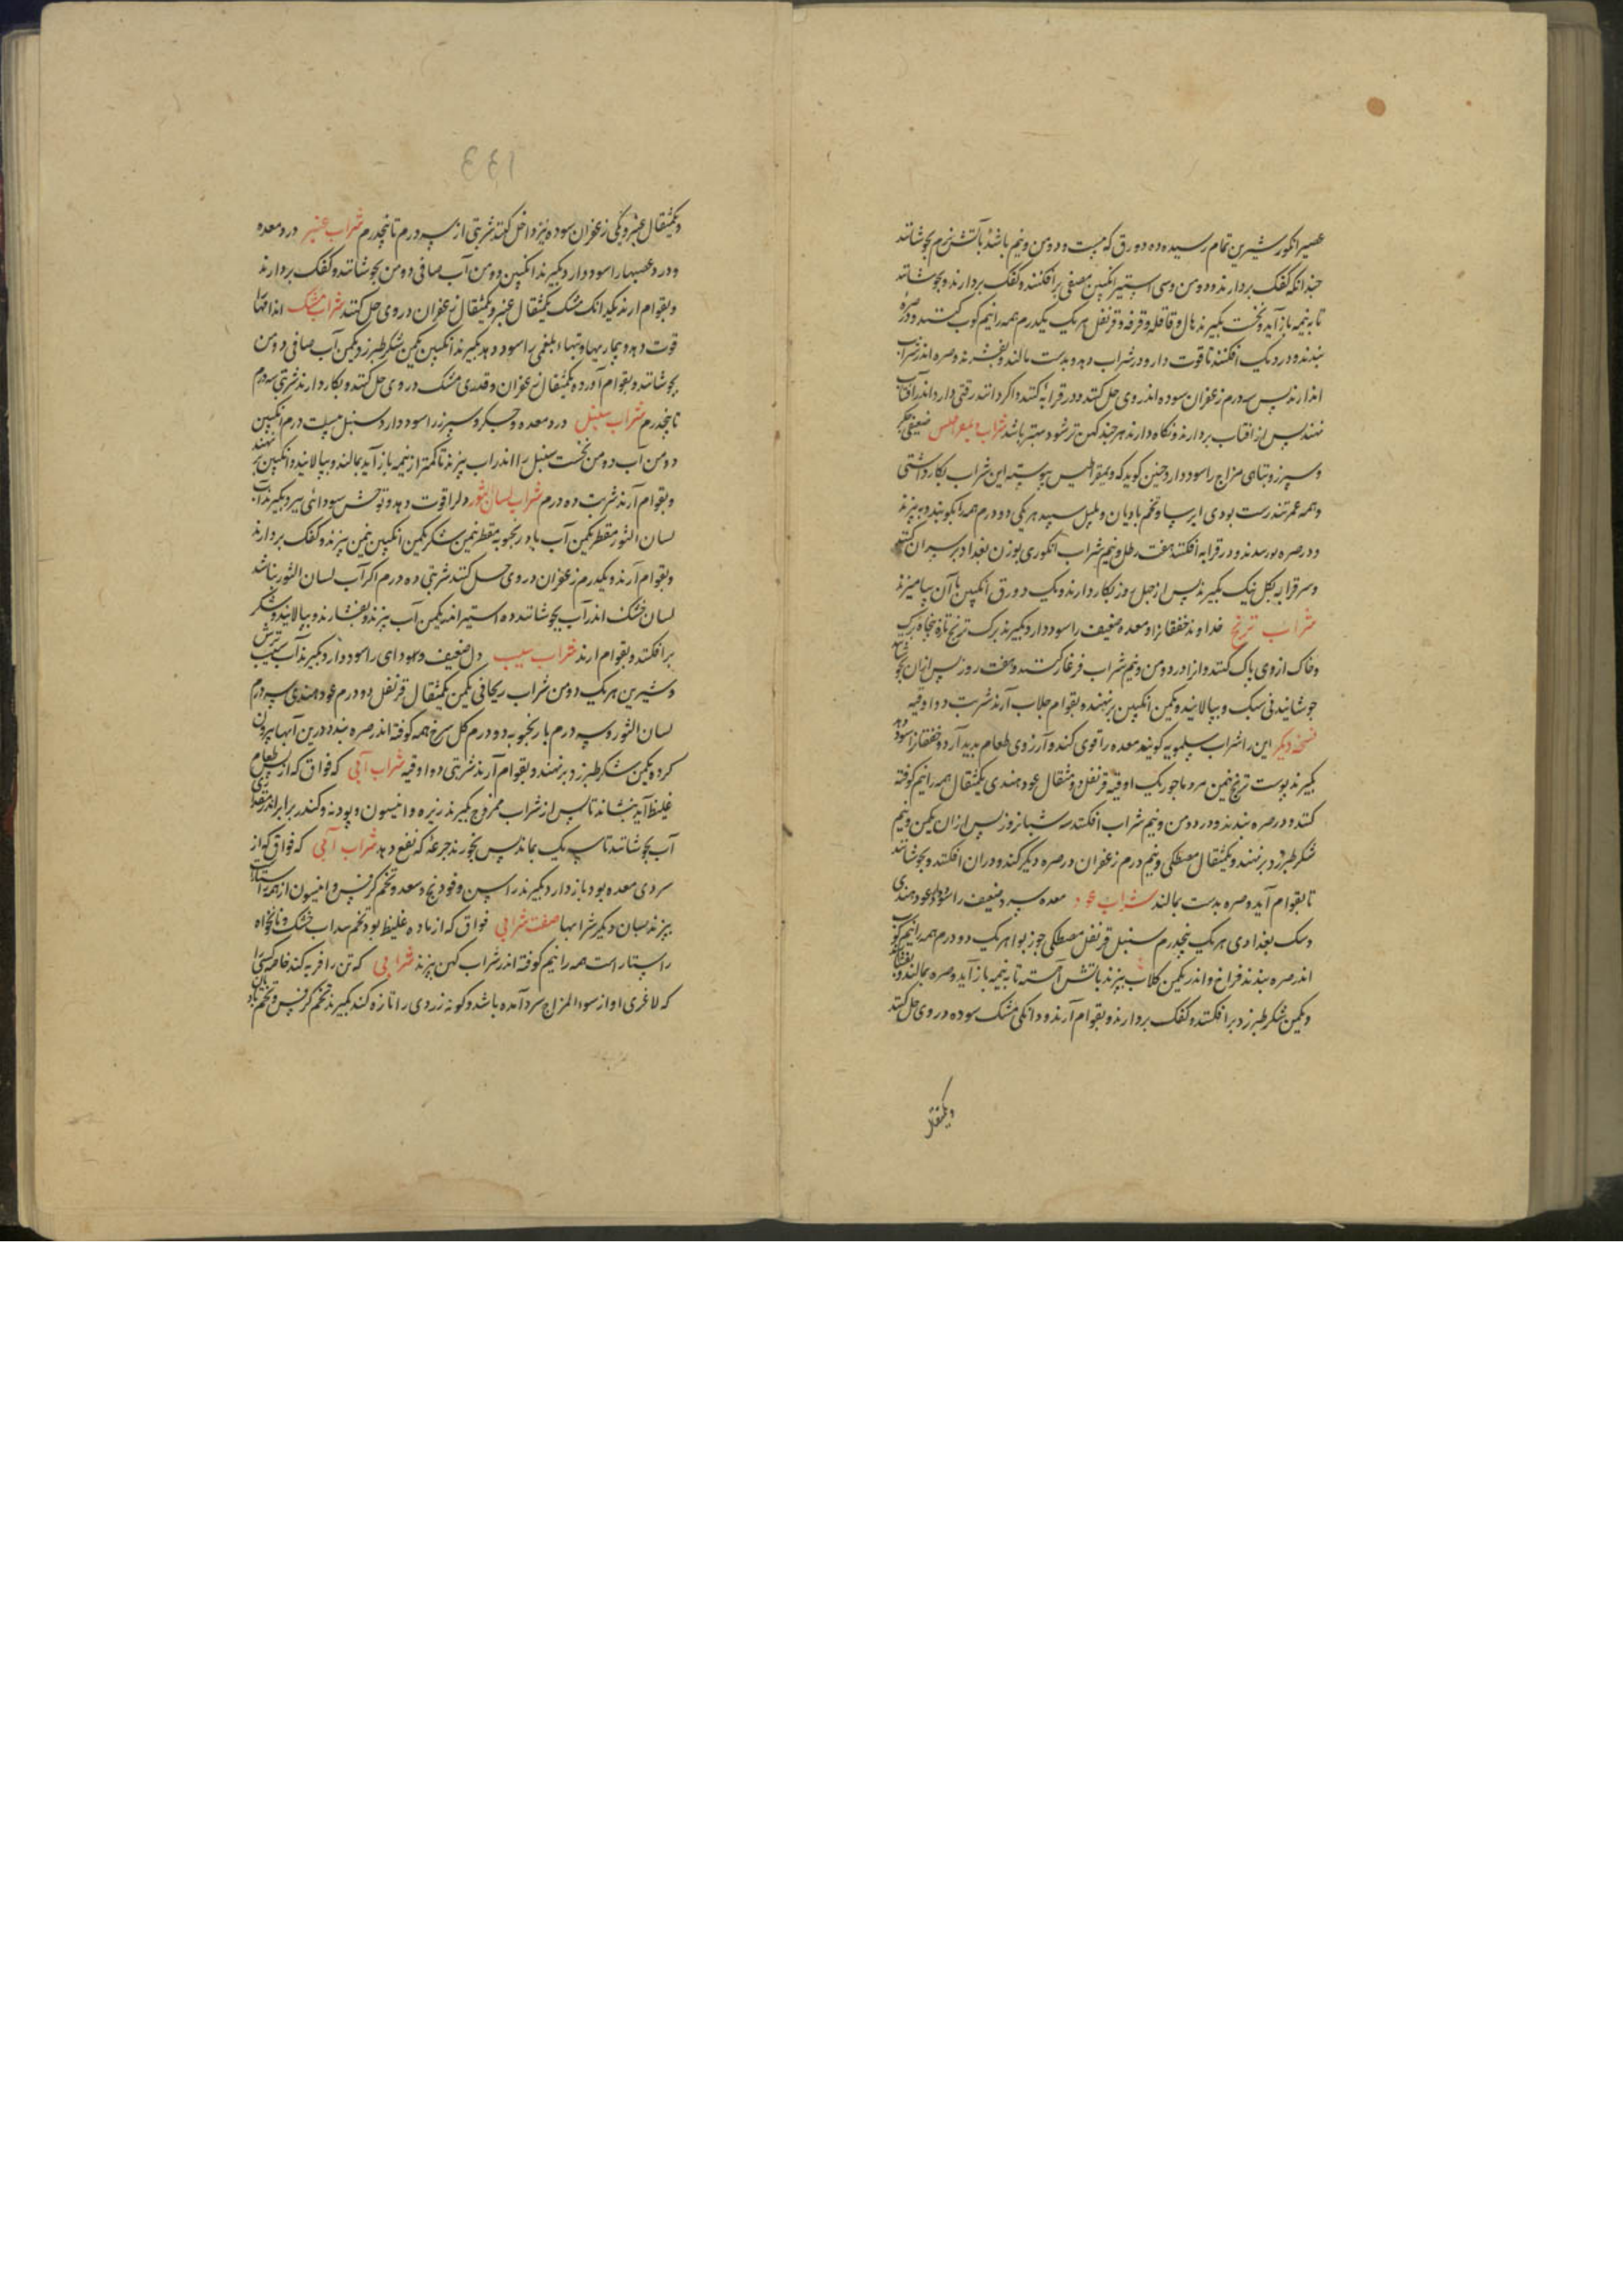 عصیر انکور شیرین تمام رسیده ده دورق که بیست و دو من و نیم باشد بآتش نرم بجوشانند
چندانکه کفک بردارند و دو من و سی استیر انکبین مصفی برافکنند و کفک بردارند و بجوشانند
تا به نیمه بازآید و نخست بکیرند هال و قاقله و قرفه و قرنفل هریک یکدرم همه را نیم کوب کنند و در صره
بندند و در دیک افکنند تا قوت دارو در شراب دهد و بدست بمالند و بفشرند و صره اندر شراب
اندازند پس سه درم زعفران سوده اندر وی حل کنند و در قرابه کنند و اکر دانند رقتی دارد اندر آفتاب
نهند پس از افتاب بردارند و نکاه دارند هرچند کهن تر شود بهتر باشد شراب ضعیفی جکر
و سپرز و تباهی مزاج را سود دارد چنین کوید که پیوسته این شراب بکار داشتی
و همه عمر تندرست بودی ایرسا و تخم بادیان و پلپل سپید هر یکی دو درم همه را بکوبند و ببیزند
و در صره بندند و در قرابه افکنند هفت رطل و نیم شراب انکوری بوزن بغداد بر سر آن کنند
و سر قرابه بکل نیک بکیرند پس از چهل روز بکار دارند و یک دورق انکبین با آن بیامیزند
شراب ترنج خداوند خفقان را و معده ضعیف را سود دارد بکیرند برک ترنج تازه پنجاه برک
و خاک از وی پاک کنند و انرا در دو من و نیم شراب فرغار کنند و هفت روز پس ازان بجوشانند
جوشانیدنی سبک و بپالایند و یکمن انکبین برنهند و بقوام جلاب آرند شربت دو اوقیه
نسخه دیکر این را شراب سلمویه کویند معده را قوی کند و آرزوی طعام پدید آرد و خفقان را سود دهد
بکیرند پوست ترنج نیمن مرد ماحوز یک اوقیه قرنفل دو مثقال عود هندی یکمثقال همه را نیم کوفته
کنند و در صره بندند و در دو من و نیم شراب افکنند سه شبانروز پس ازان یکمن و نیم
شکر طبرزد برنهند و یکمثقال مصطکی و نیم درم زعفران در صره دیکر کنند و دران افکنند و بجوشانند
تا بقوام آید و صره بدست بمالند شراب عود معده سرد و ضعیف را سود دارد عود هندی
و سک بغدادی هریک پنجدرم سنبل قرنفل مصطکی جوز بوا هریک دو درم همه را نیم کوب
اندر صره بندند فراخ و اندر یکمن کلاب بپزند باتش آهسته تا به نیمه بازآید و صره بمالند و بفشارند
و یکمن شکر طبرزد برافکنند و کفک بردارند و بقوام آرند و دانکی مشک سوده در وی حل کنند
ویکمثقال
۱۴۴
ویکمثقال عنبر و زعفران سوده نیز داخل کنند شربتی از سه درم تا پنجدرم شراب عنبر درد معده
و درد عصبها را سود دارد بکیرند انکبین ده من آب صافی ده من بجوشانند و کفک بردارند
و بقوام ارند یکدانک مشک یکمثقال عنبر و یکمثقال زعفران در وی حل کنند شراب مشک اندامها را
قوت دهد و بیماریها و تبهاء بلغمی را سود دهد بکیرند انکبین یکمن شکر طبرزد یکمن آب صافی دو من
بجوشانند و بقوام آورده یکمثقال زعفران و قدری مشک در وی حل کنند و بکار دارند شربتی سه درم
تا پنجدرم شراب سنبل درد معده و جکر و سپرز را سود دارد سنبل بیست درم انکبین
دو من آب ده من نخست سنبل را اندر اب بپزند تا کمتر از نیمه بازآید بمالند و بپالایند و انکبین برنهند
و بقوام آرند شربت ده درم شراب لسان الثور دل را قوت دهد و توحش سودائی ببرد بکیرند آب
لسان الثور مقطر یکمن آب بادرنجبویه مقطر نیمن شکر یکمن انکبین نیمن بپزند و کفک بردارند
و بقوام آرند و یکدرم زعفران در وی حل کنند شربتی ده درم اکر آب لسان الثور نباشد
لسان خشک اندر آب بجوشانند ده استیر اندر یکمن آب بپزند و بفشارند و بپالایند و شکر
برافکنند و بقوام ارند شراب سیب دل ضعیف و سودای را سود دارد بکیرند آب سیب ترش
و شیرین هریک دو من شراب ریحانی یکمن یکمثقال قرنفل دو درم عود هندی سه درم
لسان الثور و سه درم بادرنجبویه دو درم کل سرخ همه کوفته اندر صره بندد درین آبها بیرون
کرده یکمن شکر طبرزد برنهند و بقوام آرند شربتی دو اوقیه شراب آبی که فواق که از طعام
غلیظ آید بنشاند تا پس از شراب ممزوج بکیرند زیره و انیسون و پودنه و کندر برابر اندر مقداری
آب بجوشانند تا سه یک بماند پس بخورند جرعه که نفع دهد شراب آبی که فواق که از
سردی معده بود بازدارد بکیرند راسن و فودنج و سعد و تخم کرفس و انیسون از همه راستاراست
بپزند بسان دیکر شرابها صفت شرابی فواق که از باده غلیظ بود تخم سداب خشک و نانخواه
راستاراست همه را نیم کوفته اندر شراب کهن بپزند شرابی که تن را فربه کند خاصه کسی را
که لاغری او از سوء المزاج سرد آمده باشد و کونه زردی را تازه کند بکیرند تخم کرفس و تخم بادیان